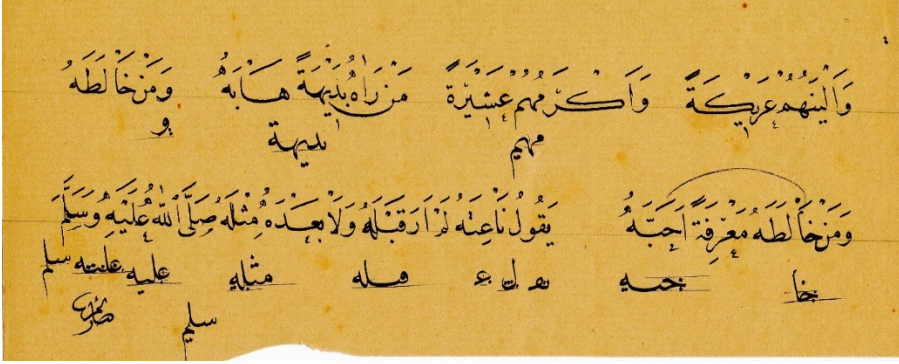 وَاَلْيَنَهُمْ عَرِيكَةً وَاَكْرَمُهُمْ عَشِيْرَةً مَنْ رَاٰهُ بَدِيْهَةً هَابَهُ وَمَنْ خَالَطَهُ
و بديهة مهم
وَمَنْ خَالَطَهُ مَعْرِفَةً اَحَبَّهُ يَقُولُ نَاعِتُهُ لَمْ اَرَ قَبْلَهُ وَلَا بَعْدَهُ مِثْلَهُ صَلَّى اللهُ عَلَيْهِ وَسَلَّمَ
خا حبه قبله مثله عليه عليه سلم
سلم